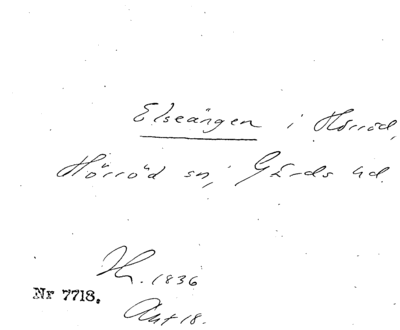 Elseängen i Hörröd,
Hörröd sn, Gärds hd.
H. 1836
Nr 7718.
Akt 18.